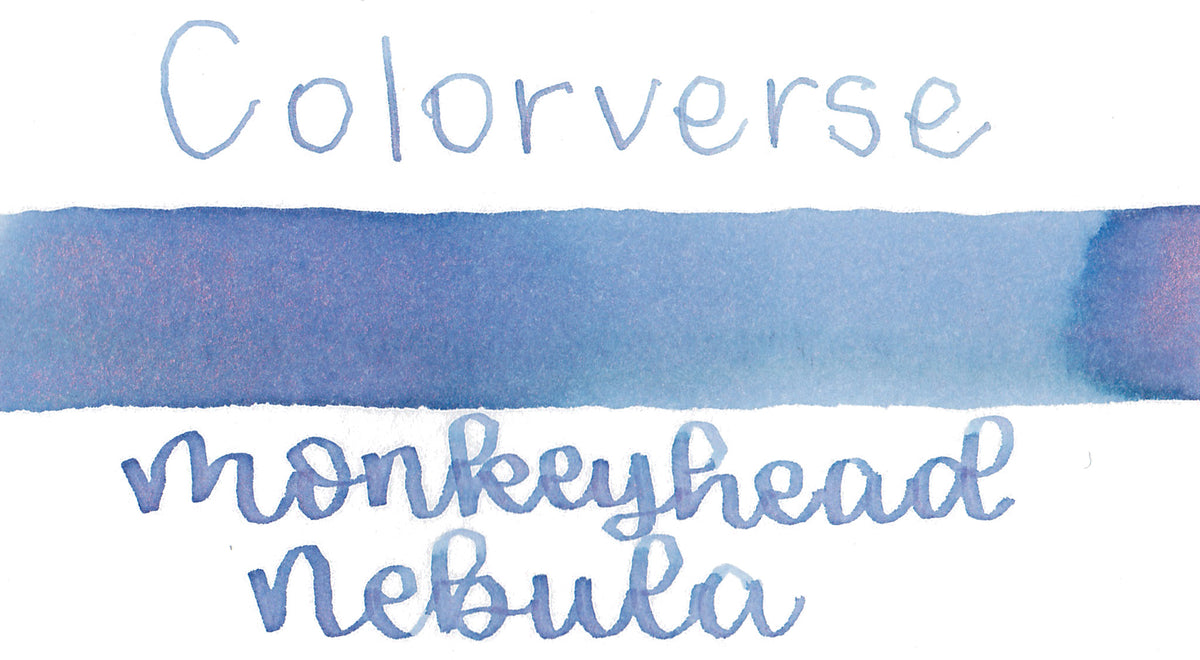 Colorverse
monkeyhead
nebula